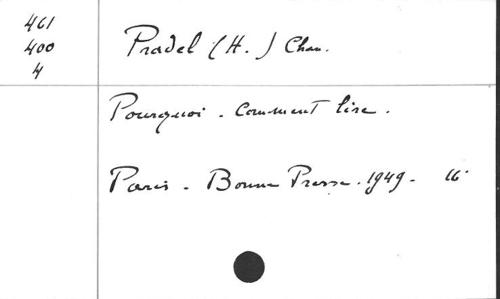 461
400
4
Pradel (H.) Chan.
Pourquoi - Comment lire.
Paris - Bonne Presse - 1949 - 16°